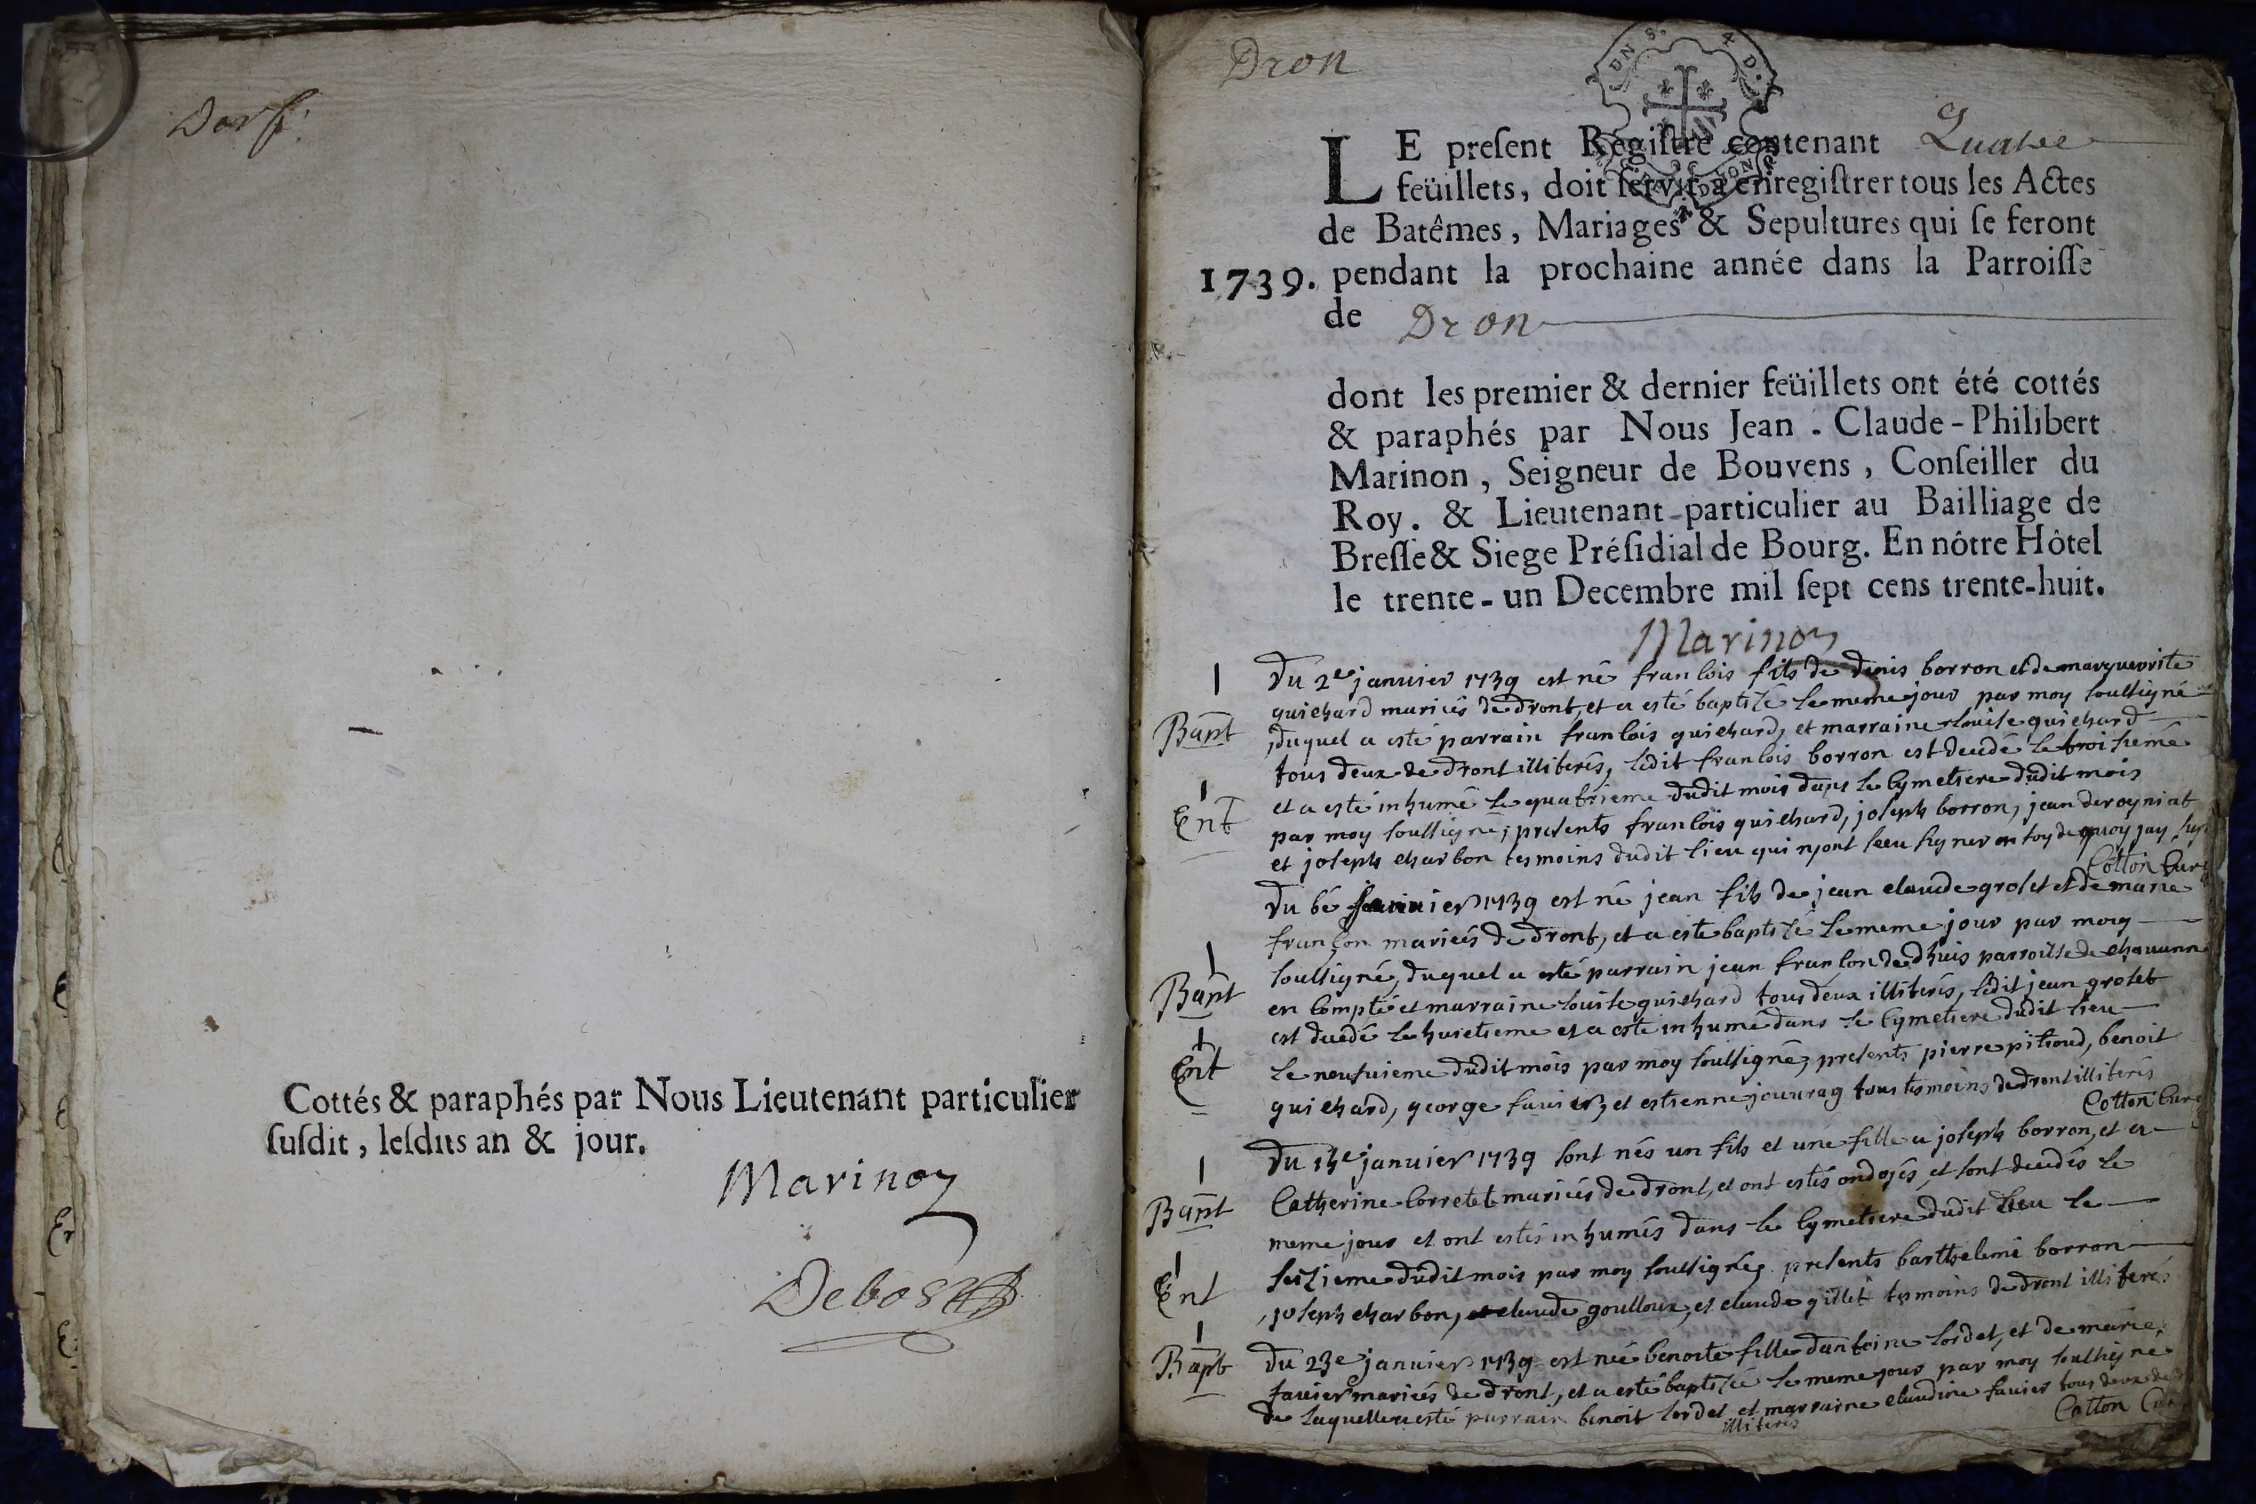 Cottés & paraphés par Nous Lieutenant particulier
ſuſdit, leſdits an & jour.
Marinon
Debost
Dron
LE preſent Regiſtre contenant Quatre
feüillets, doit ſervir à enregiſtrer tous les Actes
de Batêmes, Mariages & Sepultures qui ſe feront
1739. pendant la prochaine année dans la Parroiſſe
de Dron
dont les premier & dernier feüillets ont été cottés
& paraphés par Nous Jean-Claude-Philibert
Marinon, Seigneur de Bouvens, Conſeiller du
Roy. & Lieutenant particulier au Bailliage de
Breſſe & Siege Préſidial de Bourg. En nôtre Hôtel
le trente-un Decembre mil ſept cens trente-huit.
Marinon
1 Du 2e janvier 1739 est né francois fils de denis borron et de marguerite
Bapt guichard mariés de dront, et a esté baptisé le meme jour par moy soussigné
duquel a esté parrain francois guichard, et marraine louise guichard
tous deux de dront illiterés, ledit francois borron est decedé le troisieme
1 Ent et a esté inhumé le quatrieme dudit mois dans le cymetiere dudit mois
par moy soussigné, presents francois guichard, joseph borron, jean deroyniat
et joseph charbon tesmoins dudit lieu qui n'ont sceu signer en foy de quoy jay
Cotton Curé
Du 6e janvier 1739 est né jean fils de jean claude groset et de marie
françon mariés de dront, et a esté baptisé le meme jour par moy
1 Bapt soussigné, duquel a esté parrain jean françon de dhuis parroisse de chavanne
en compté et marraine louise guichard tous deux illiterés, ledit jean groset
1 est decedé le huictieme et a esté inhumé dans le cymetiere dudit lieu
Ent le neufvieme dudit mois par moy soussigné, presents pierre pitioud, benoit
guichard, george favier, et estienne jouvray tous tesmoins de dront illiterés
Cotton Curé
1 Du 15e janvier 1739 sont nés un fils et une fille a joseph borron, et a
Bapt Catherine Corretet mariés de dront, et ont estés ondoyés, et sont decedés le
meme jour et ont estés inhumés dans le cymetiere dudit lieu le
1 Ent seizieme dudit mois par moy soussigné, presents barthelemi borron
joseph charbon, claude goulloux, et claude gillet tesmoins de dront illiterés
1
Bapt Du 23e janvier 1739 est née benoite fille dantoine sordet, et de marie
favier mariés de dront, et a esté baptisée le meme jour par moy soussigné
de laquelle a esté parrain benoit sordet et marraine claudine favier tous deux de
illiterés Cotton Curé